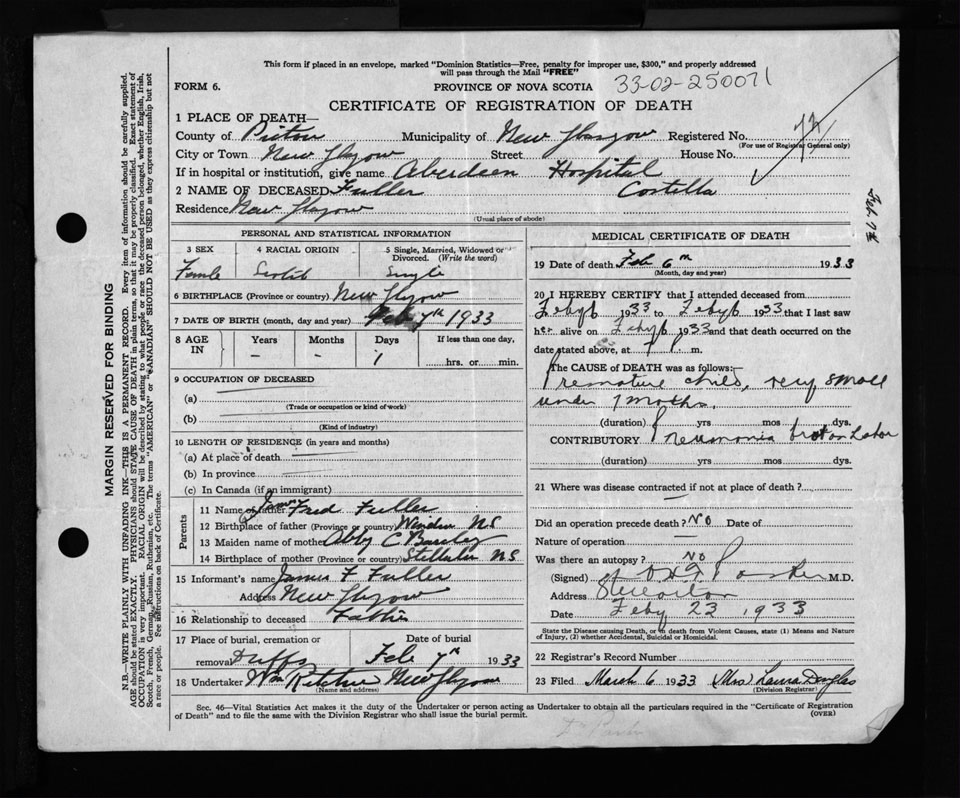 This form if placed in an envelope, marked "Dominion Statistics—Free, penalty for improper use, $300," and properly addressed
will pass through the Mail "FREE"
FORM 6. PROVINCE OF NOVA SCOTIA 33-02-250071
CERTIFICATE OF REGISTRATION OF DEATH
1 PLACE OF DEATH—
County of Pictou Municipality of New Glasgow Registered No.
(For use of Registrar General only)
City or Town New Glasgow Street House No.
If in hospital or institution, give name Aberdeen Hospital
2 NAME OF DECEASED Fuller Costella
Residence New Glasgow
(Usual place of abode)
PERSONAL AND STATISTICAL INFORMATION
3 SEX 4 RACIAL ORIGIN 5 Single, Married, Widowed or Divorced. (Write the word)
Female Scotch Single
6 BIRTHPLACE (Province or country) New Glasgow
7 DATE OF BIRTH (month, day and year) 7th 1933
8 AGE IN Years Months Days If less than one day,
— — 1 hrs. or min.
9 OCCUPATION OF DECEASED
(a)
(Trade or occupation or kind of work)
(b)
(Kind of industry)
10 LENGTH OF RESIDENCE (in years and months)
(a) At place of death
(b) In province
(c) In Canada (if an immigrant)
Parents
11 Name of father James Fred Fuller
12 Birthplace of father (Province or country) Windsor NS
13 Maiden name of mother Abby C
14 Birthplace of mother (Province or country) Stellarton N.S.
15 Informant's name James F Fuller
Address New Glasgow
16 Relationship to deceased Father
17 Place of burial, cremation or removal Duffs Date of burial Feb 7th 1933
18 Undertaker Wm New Glasgow
(Name and address)
MEDICAL CERTIFICATE OF DEATH
19 Date of death Feb 6th 1933
(Month, day and year)
20 I HEREBY CERTIFY that I attended deceased from
Feby 6 1933 to Feby 6 1933 that I last saw
her alive on Feby 6 1933 and that death occurred on
date stated above, at 7 P. m.
The CAUSE of DEATH was as follows:—
Premature child, very small
under 7 months.
(duration) yrs mos dys.
CONTRIBUTORY Pneumonia
(duration) yrs mos dys.
21 Where was disease contracted if not at place of death?
Did an operation precede death? No Date of
Nature of operation
Was there an autopsy? No
(Signed) M.D.
Address Stellarton
Date Feby 23 1933
State the Disease causing Death, or in death from Violent Causes, state (1) Means and Nature
of Injury, (2) whether Accidental, Suicidal or Homicidal.
22 Registrar's Record Number
23 Filed March 6 1933 Mrs Laura Douglas
(Division Registrar)
Sec. 46—Vital Statistics Act makes it the duty of the Undertaker or person acting as Undertaker to obtain all the particulars required in the "Certificate of Registration
of Death" and to file the same with the Division Registrar who shall issue the burial permit. (OVER)
MARGIN RESERVED FOR BINDING
N.B.—WRITE PLAINLY WITH UNFADING INK—THIS IS A PERMANENT RECORD. Every item of information should be carefully supplied.
AGE should be stated EXACTLY. PHYSICIANS should STATE CAUSE OF DEATH in plain terms, so that it may be properly classified. Exact statement of
OCCUPATION is very important. RACIAL ORIGIN will be described by stating to what people or race the deceased person belonged, whether English, Irish,
Scotch, French, German, Russian, Ruthenian, etc. The terms "AMERICAN" or "CANADIAN" SHOULD NOT BE USED as they express citizenship but not
a race or people. See instructions on back of Certificate.